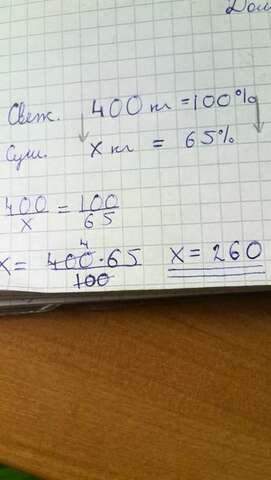 Дом
Свеж. 400 кг = 100%
Суш. x кг = 65%
400/x = 100/65
x = 400·65/100 4 x = 260